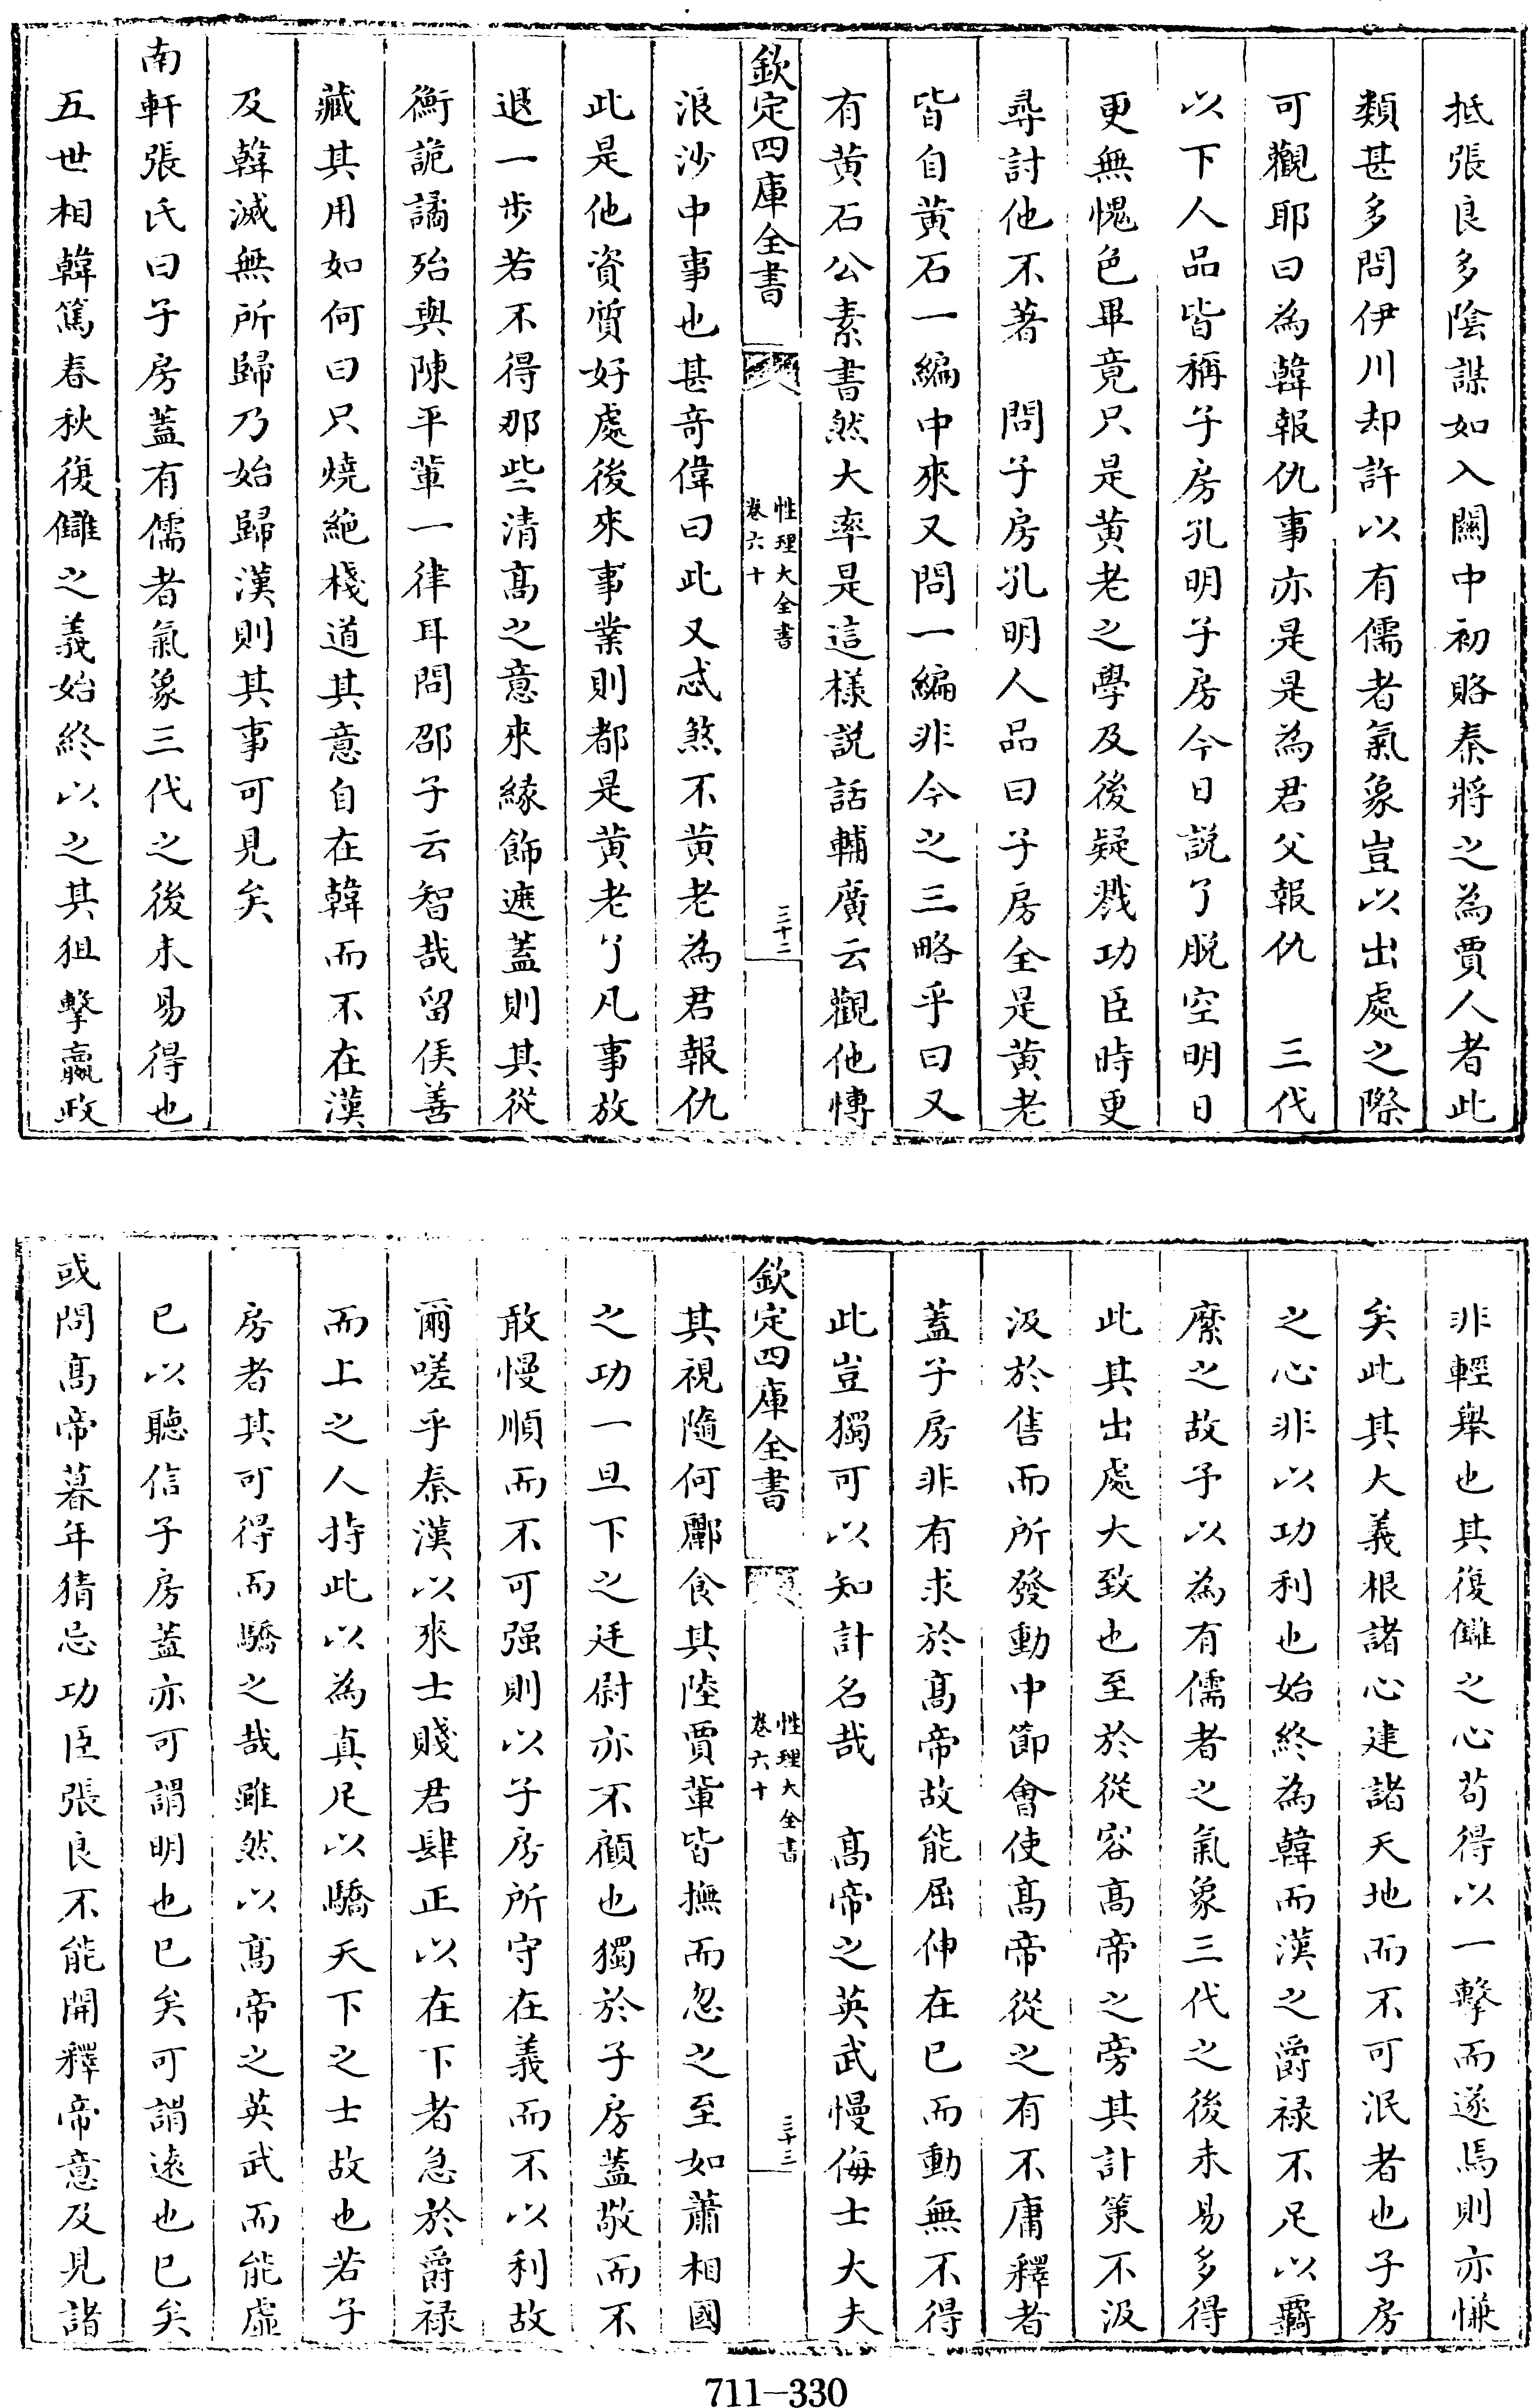 抵張良多陰謀如入關中初賂秦將之為賈人者此
類甚多問伊川却許以有儒者氣象豈以出處之際
可觀耶曰為韓報仇事亦是是為君父報仇　三代
以下人品皆稱子房孔明子房今日説了脱空明日
更無愧色畢竟只是黄老之學及後疑戮功臣時更
尋討他不著　問子房孔明人品曰子房全是黄老
皆自黄石一編中來又問一編非今之三略乎曰又
有黄石公素書然大率是這様説話輔廣云觀他博
欽定四庫全書
性理大全書
卷六十
三十二
浪沙中事也甚奇偉曰此又忒煞不黄老為君報仇
此是他資質好處後來事業則都是黄老了凡事放
退一步若不得那些清髙之意來緣飾遮蓋則其從
衡詭譎殆與陳平輩一律耳問邵子云智哉留侯善
藏其用如何曰只燒絶棧道其意自在韓而不在漢
及韓滅無所歸乃始歸漢則其事可見矣
南軒張氏曰子房蓋有儒者氣象三代之後未易得也
五世相韓篤春秋復讎之義始終以之其狙擊嬴政
非輕舉也其復讎之心苟得以一擊而遂焉則亦慊
矣此其大義根諸心建諸天地而不可泯者也子房
之心非以功利也始終為韓而漢之爵禄不足以覊
縻之故予以為有儒者之氣象三代之後未易多得
此其出處大致也至於從容髙帝之旁其計策不汲
汲於售而所發動中節會使髙帝從之有不庸釋者
蓋子房非有求於髙帝故能屈伸在已而動無不得
此豈獨可以知計名哉　髙帝之英武慢侮士大夫
欽定四庫全書
性理大全書
卷六十
三十三
其視隨何酈食其陸賈輩皆撫而忽之至如蕭相國
之功一旦下之廷尉亦不顧也獨於子房蓋敬而不
敢慢順而不可强則以子房所守在義而不以利故
爾嗟乎秦漢以來士賤君肆正以在下者急於爵禄
而上之人持此以為真足以驕天下之士故也若子
房者其可得而驕之哉雖然以髙帝之英武而能虚
已以聽信子房蓋亦可謂明也已矣可謂逺也已矣
或問髙帝暮年猜忌功臣張良不能開釋帝意及見諸
711-330